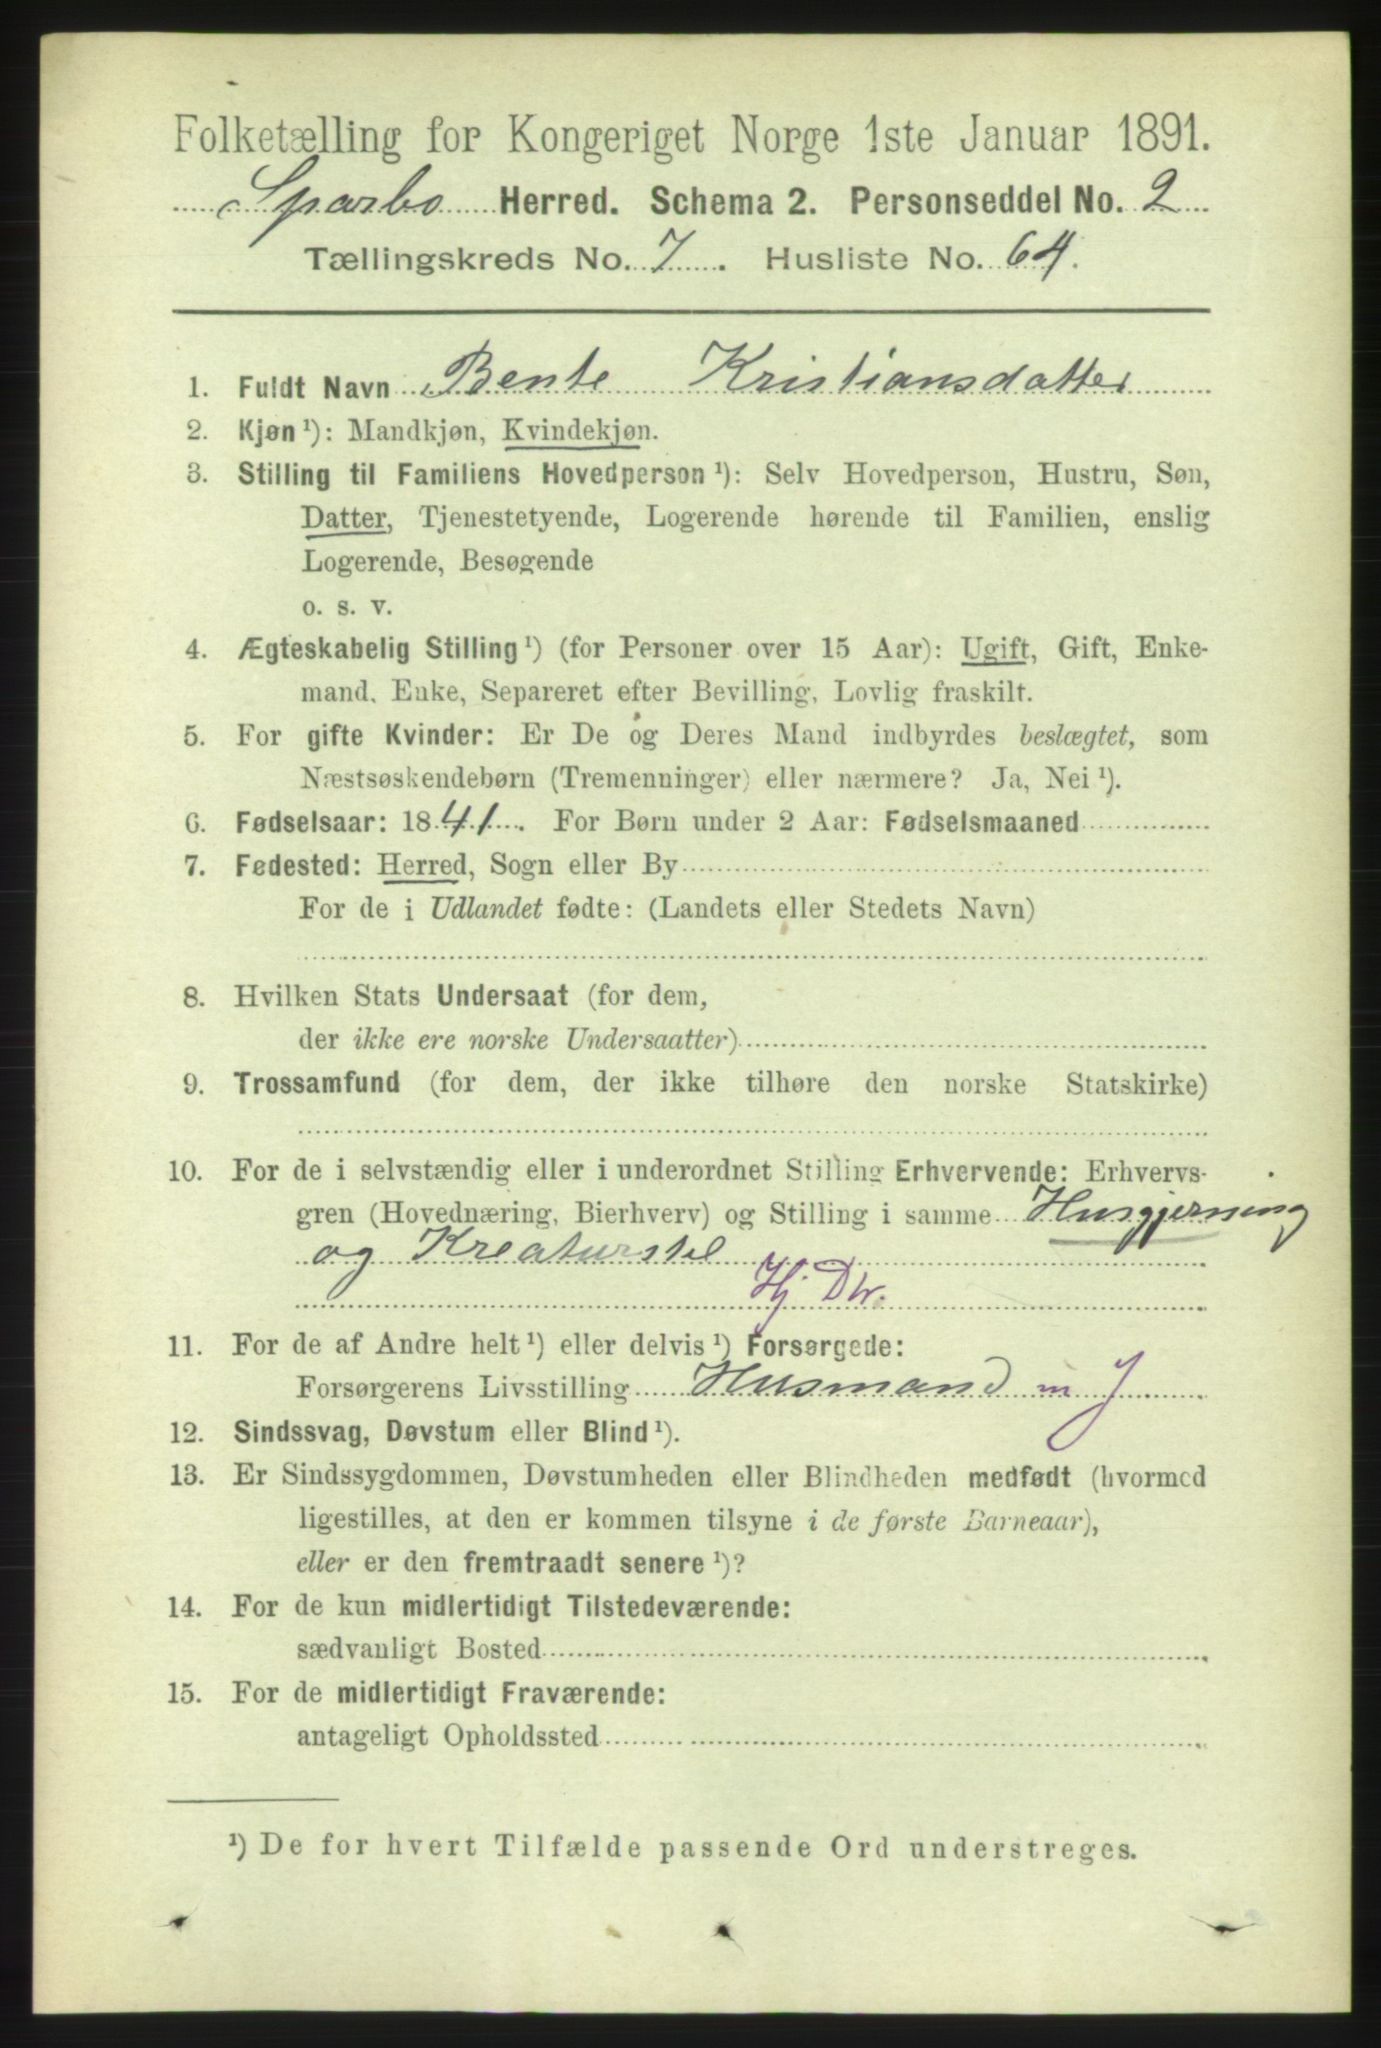 Folketælling for Kongeriget Norge 1ste Januar 1891.
Sparbo Herred. Schema 2. Personseddel No. 2
Tællingskreds No. 7. Husliste No. 64.
1. Fuldt Navn Bente Kristiansdatter
2. Kjøn ¹): Mandkjøn, Kvindekjøn.
3. Stilling til Familiens Hovedperson ¹): Selv Hovedperson, Hustru, Søn,
Datter, Tjenestetyende, Logerende hørende til Familien, enslig
Logerende, Besøgende
o. s. v.
4. Ægteskabelig Stilling ¹) (for Personer over 15 Aar): Ugift, Gift, Enke-
mand, Enke, Separeret efter Bevilling, Lovlig fraskilt.
5. For gifte Kvinder: Er De og Deres Mand indbyrdes beslægtet, som
Næstsøskendebørn (Tremenninger) eller nærmere? Ja, Nei ¹).
6. Fødselsaar: 1841. For Børn under 2 Aar: Fødselsmaaned
7. Fødested: Herred, Sogn eller By
For de i Udlandet fødte: (Landets eller Stedets Navn)
8. Hvilken Stats Undersaat (for dem,
der ikke ere norske Undersaatter)
9. Trossamfund (for dem, der ikke tilhøre den norske Statskirke)
10. For de i selvstændig eller i underordnet Stilling Erhvervende: Erhvervs-
gren (Hovednæring, Bierhverv) og Stilling i samme Husgjerning
og Kreaturstel
Hj Dtr.
11. For de af Andre helt ¹) eller delvis ¹) Forsørgede:
Forsørgerens Livsstilling Husmand m J
12. Sindssvag, Døvstum eller Blind ¹).
13. Er Sindssygdommen, Døvstumheden eller Blindheden medfødt (hvormed
ligestilles, at den er kommen tilsyne i de første Barneaar),
eller er den fremtraadt senere ¹)?
14. For de kun midlertidigt Tilstedeværende:
sædvanligt Bosted
15. For de midlertidigt Fraværende:
antageligt Opholdssted
¹) De for hvert Tilfælde passende Ord understreges.